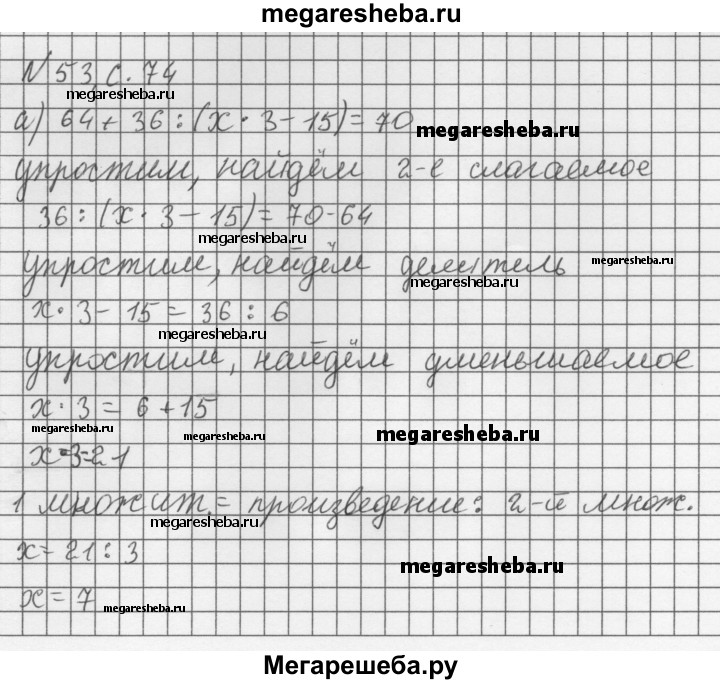 megaresheba.ru
N 53, с. 74
megaresheba.ru
а) 64 + 36 : (x · 3 - 15) = 70
megaresheba.ru
упростим, найдём 2-е слагаемое
36 : (x · 3 - 15) = 70-64
megaresheba.ru
упростим, найдём делитель
megaresheba.ru
megaresheba.ru
x · 3 - 15 = 36 : 6
megaresheba.ru
упростим, найдём уменьшаемое
x · 3 = 6 + 15
megaresheba.ru
megaresheba.ru
megaresheba.ru
x · 3 = 21
1 множит. = произведение : 2-й множ.
megaresheba.ru
x = 21 : 3
megaresheba.ru
x = 7
megaresheba.ru
Мегарешеба.ру